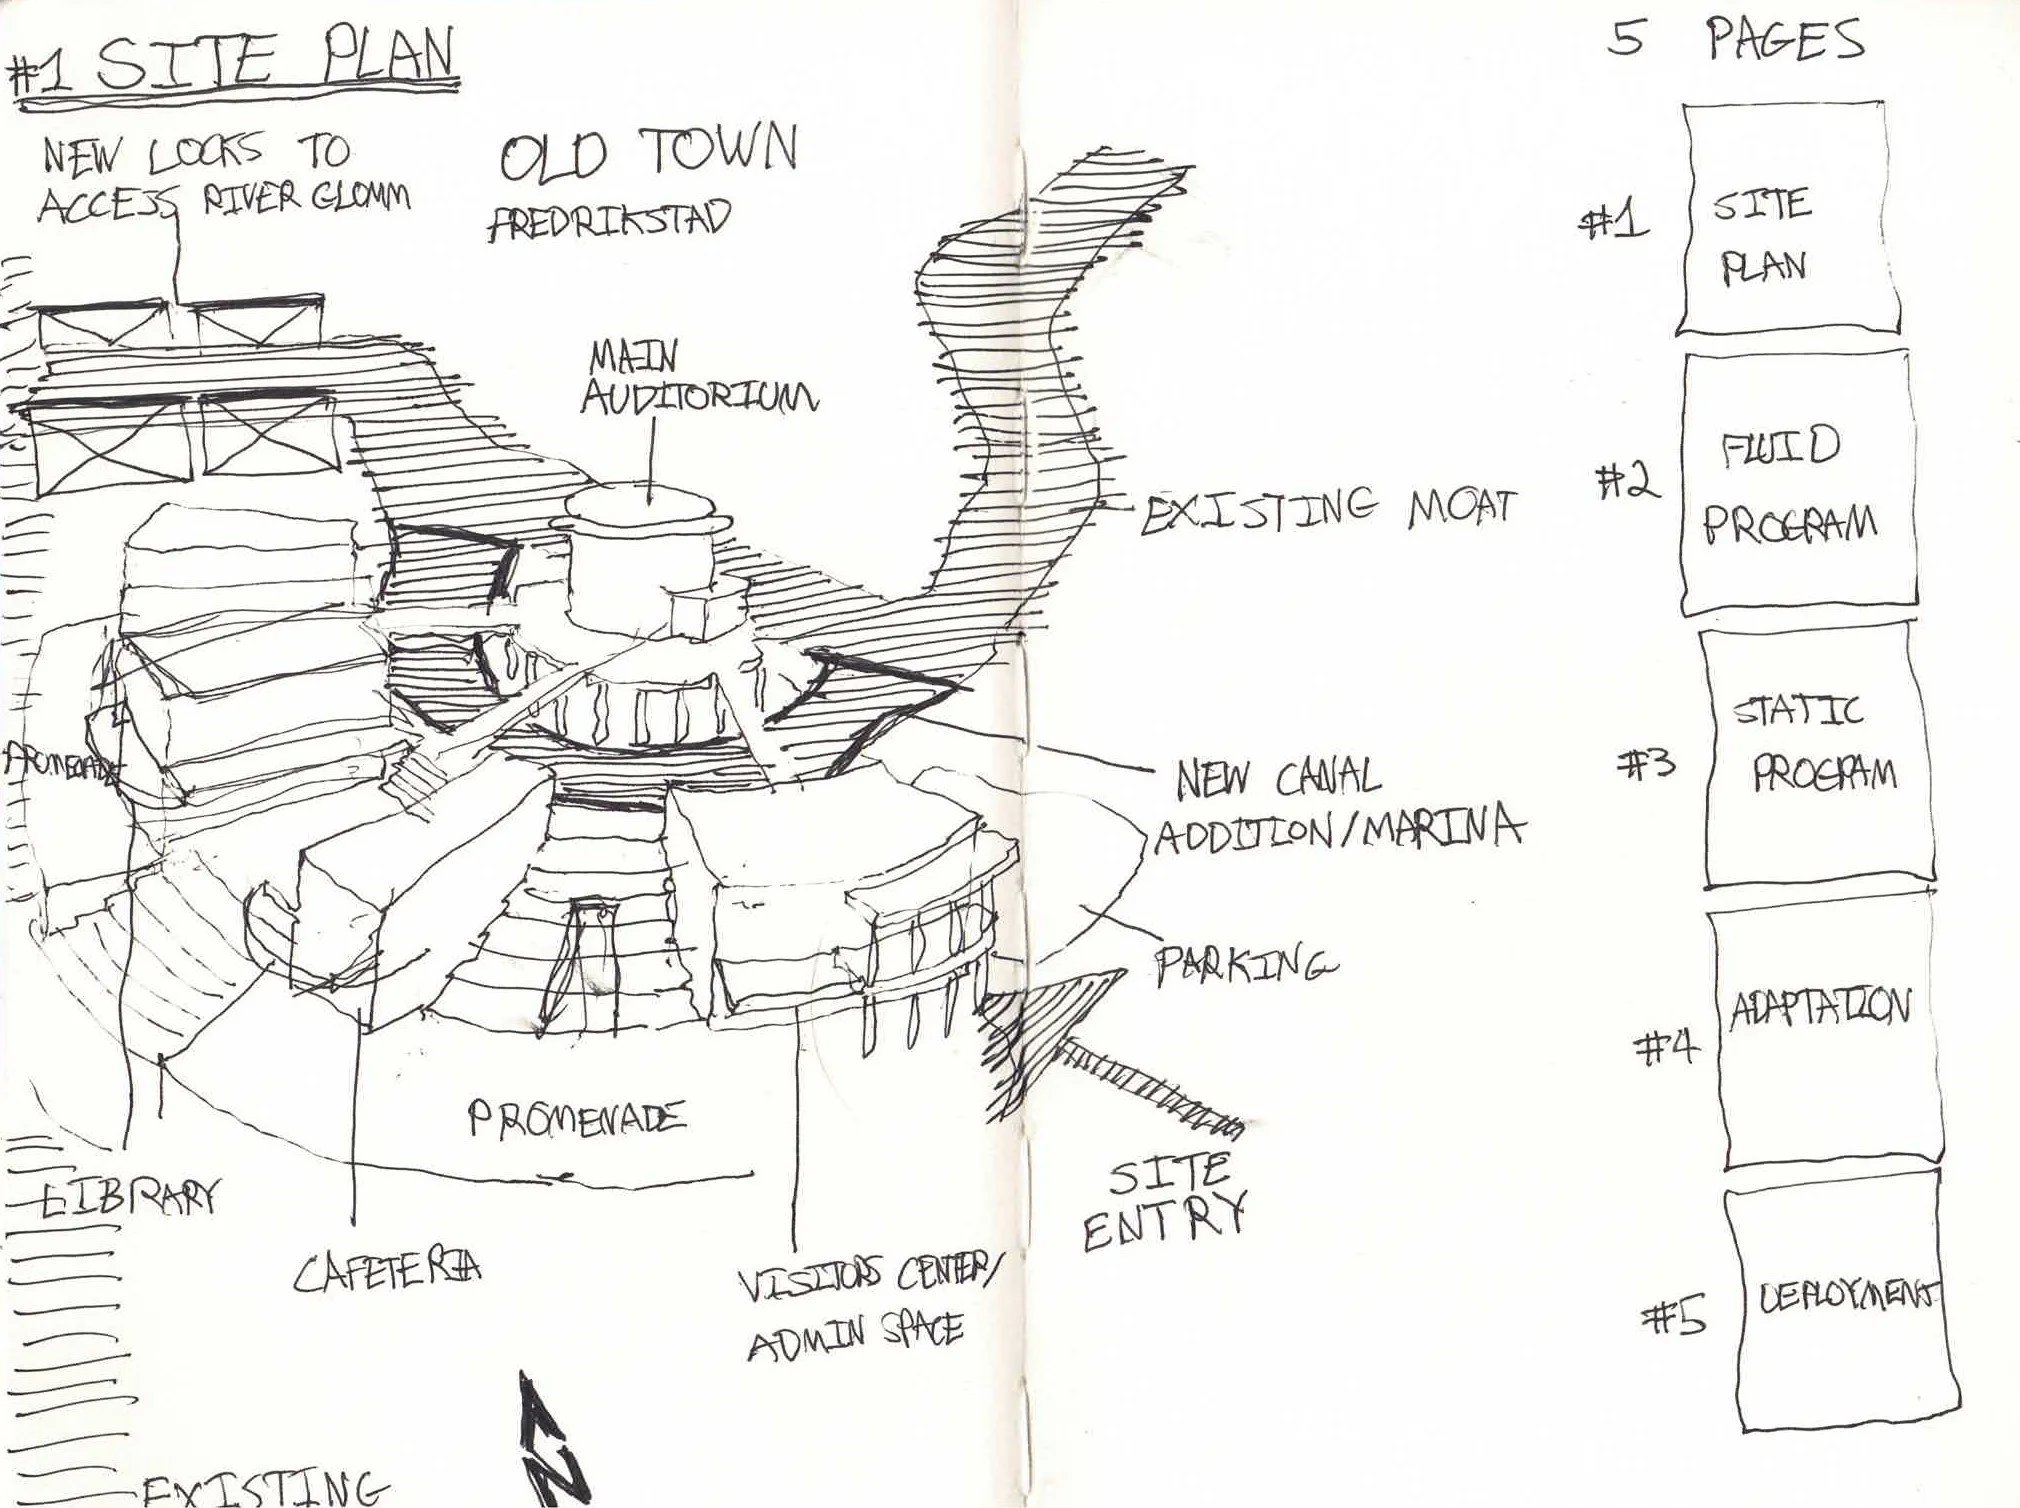 #1 SITE PLAN
NEW LOCKS TO
ACCESS RIVER GLOMM
OLD TOWN
FREDRIKSTAD
MAIN
AUDITORIUM
EXISTING MOAT
PROMENADE
NEW CANAL
ADDITION/MARINA
PARKING
PROMENADE
SITE
ENTRY
LIBRARY
CAFETERIA
VISITORS CENTER/
ADMIN SPACE
N
EXISTING
5 PAGES
#1
SITE
PLAN
#2
FLUID
PROGRAM
#3
STATIC
PROGRAM
#4
ADAPTATION
#5
DEPLOYMENT